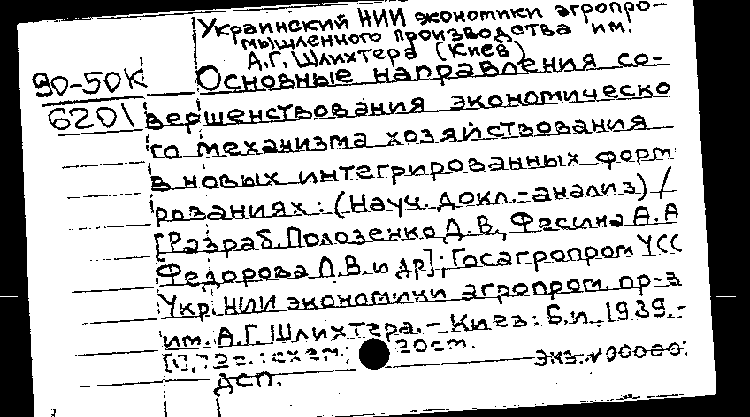 Украинский НИИ экономики агропро-
мышленного производства им.
А.Г. Шлихтера (Киев)
90-50К Основные направления со-
6201 вершенствования экономическо
го механизма хозяйствования
в новых интегрированных форм
рованиях: (Науч. докл.-анализ) /
[Разраб. Полозенко Д.В., Фесина А.А
Федорова Л.В. и др]; Госагропром УСС
Укр. НИИ экономики агропром. пр-ва
им. А.Г. Шлихтера. - Киев: Б.и. 1989.-
72с.: схем.; 20см.
ДСП.